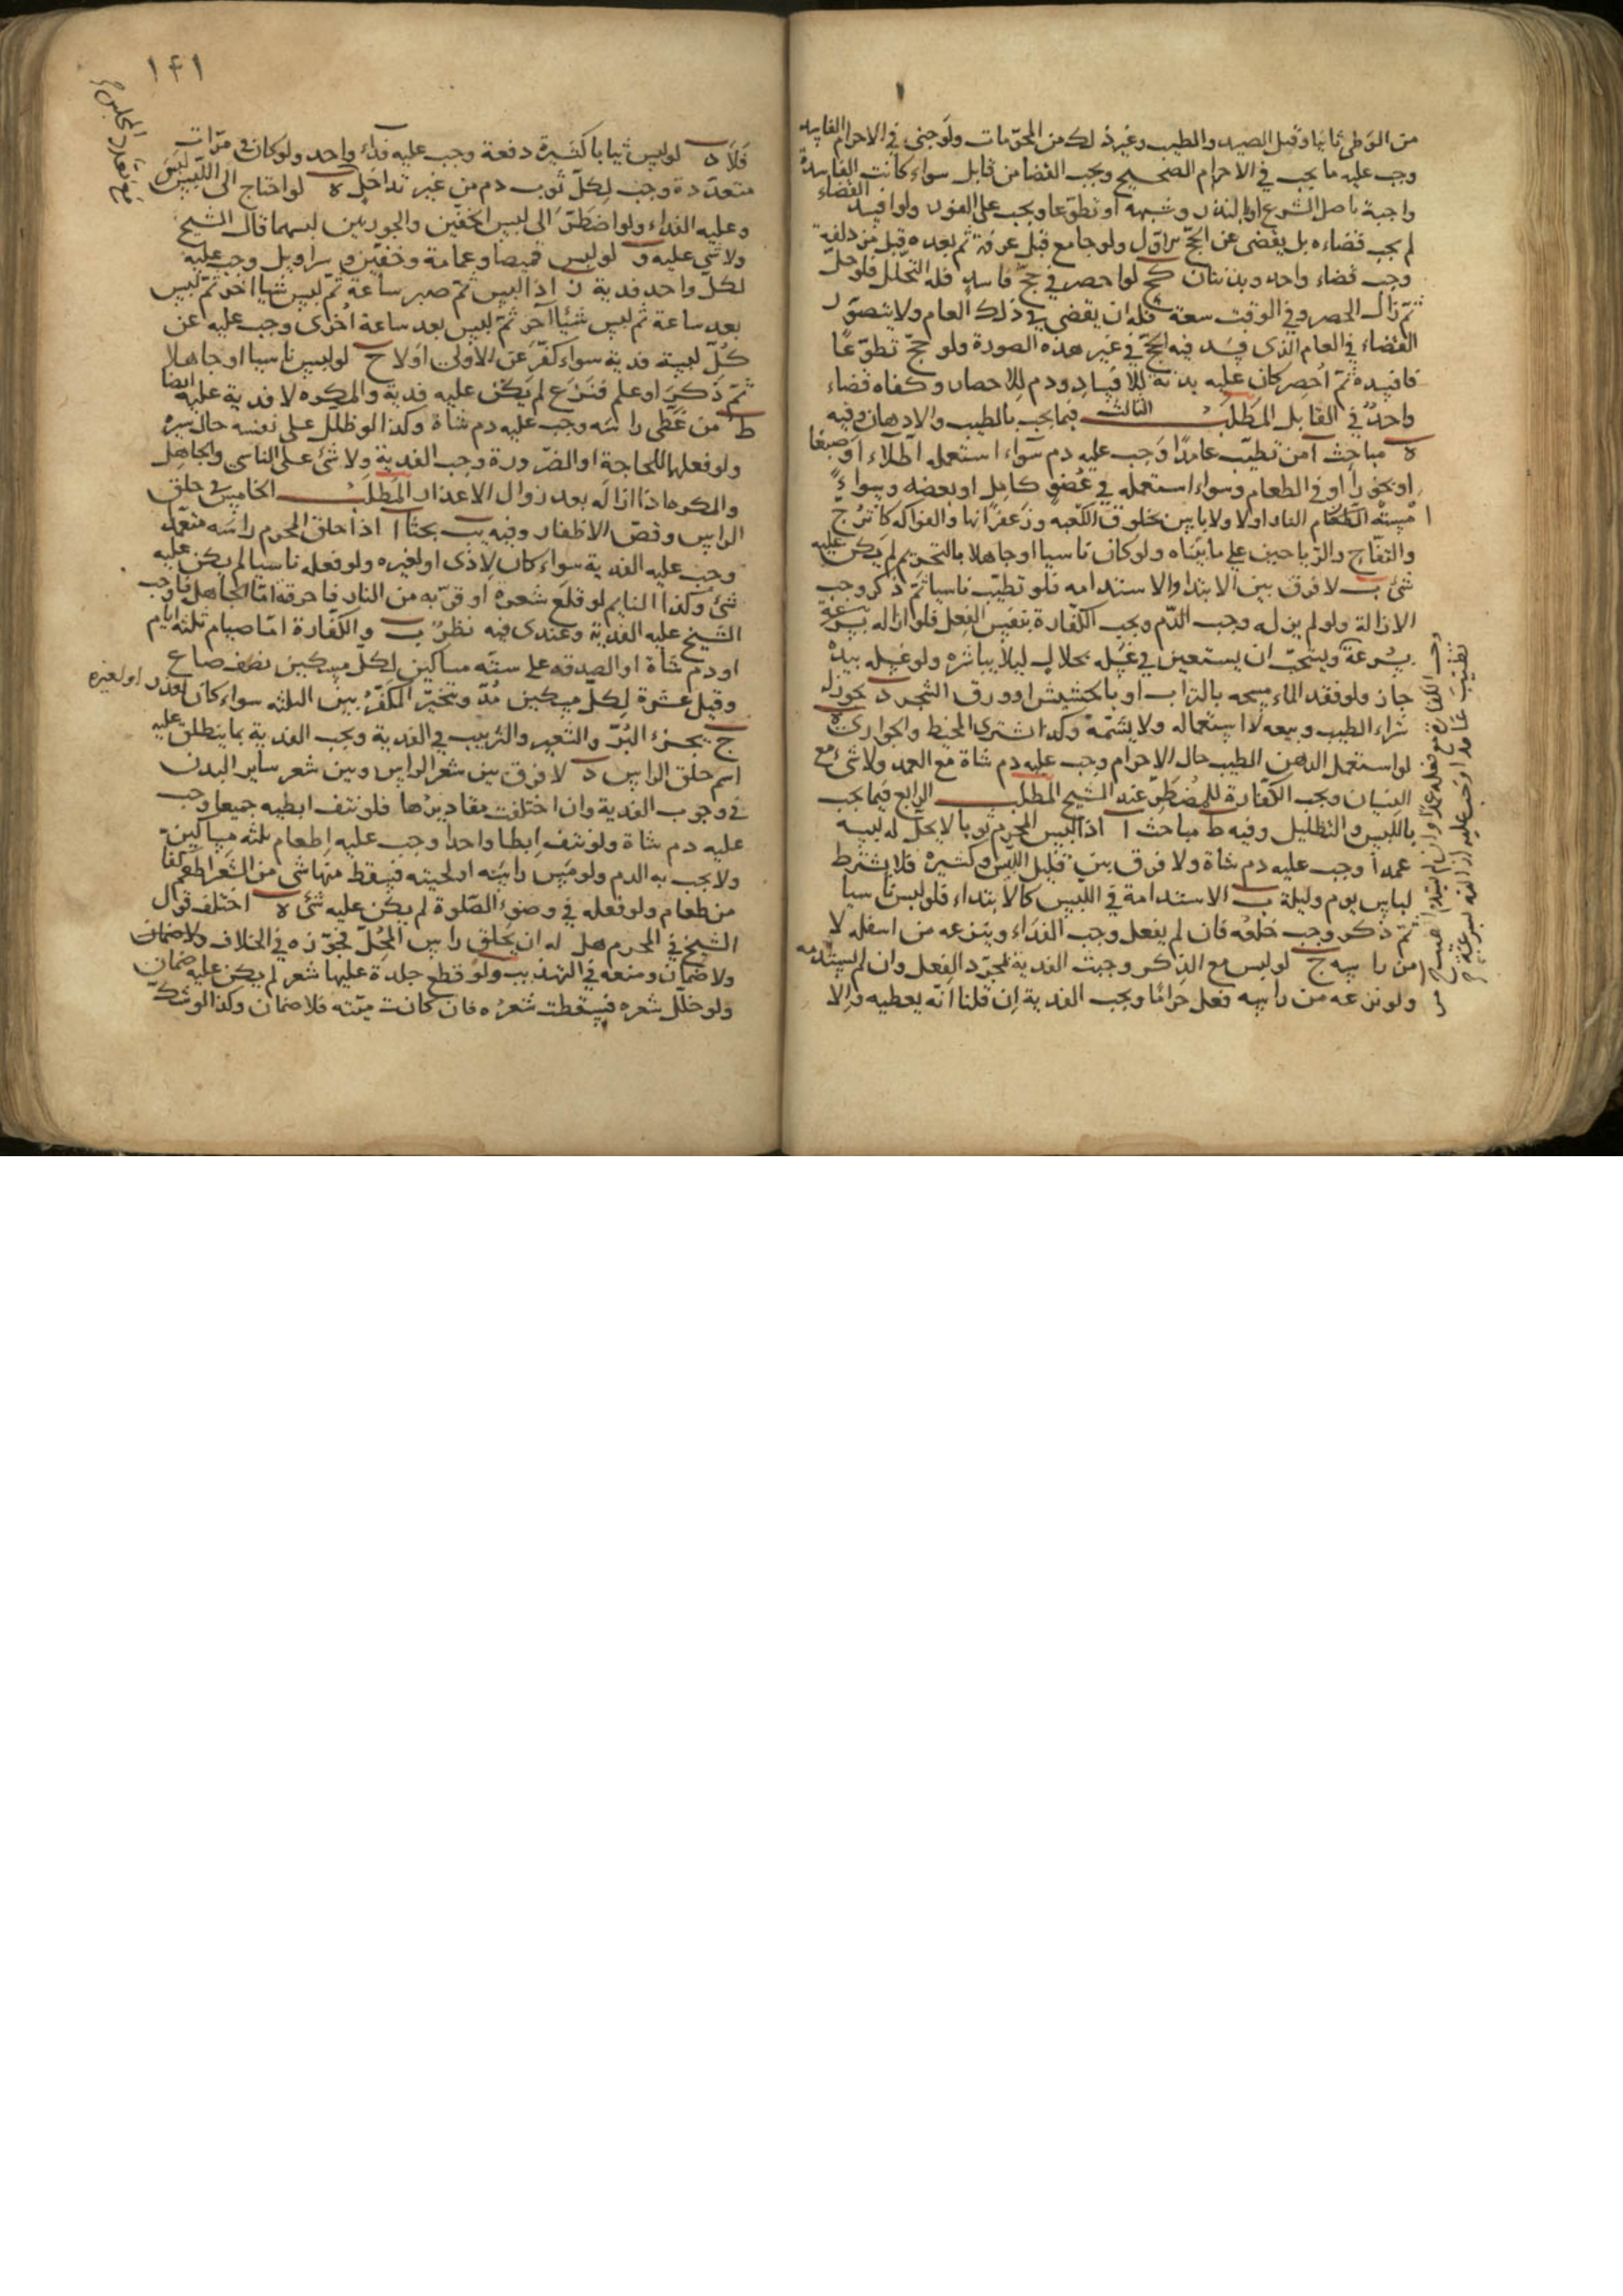 من الوطى ثانيا وقبل الصيد والطيب وغير ذلك من المحرمات ولو جنى في الاحرام الفاسد
وجب عليه ما يجب في الاحرام الصحيح ويجب القضا من قابل سواء كانت الفاسدة
واجبة باصل الشرع او بالنذر وشبهه او تطوعا ويجب على الفور ولو افسد القضاء
لم يجب قضاءه بل يقضى عن الحج الاول ولو جامع قبل عرفة ثم بعده قبل مزدلفة
وجب قضاء واحد وبدنتان كح لو احصر في حج فاسد فله التحلل فلو حل
ثم زال الحصر وفي الوقت سعة فله ان يقضى في ذلك العام ولا يتصور
القضاء في العام الذى فسد فيه الحج في غير هذه الصورة ولو حج تطوعا
فافسده ثم احصر كان عليه بدنة للافساد ودم للاحصار وكفاه قضاء
واحد في القابل المطلب الثالث فيما يجب بالطيب والادهان وفيه
ه مباحث ا من تطيب عامدا وجب عليه دم سواء استعمله اطلاء او صبغا
او بخورا او في الطعام وسواء استعمله في عضو كامل او بعضه وسواء
مسته الطعام النار اولا ولا باس بخلوق الكعبه وزعفرانها والفواكه كالاترج
والتفاح والرياحين على ما بيناه ولو كان ناسيا او جاهلا بالتحريم لم يكن عليه
شئ ب لا فرق بين الابتدا والاستدامه فلو تطيب ناسيا ثم ذكر وجب
الازالة ولو لم يزله وجب الدم ويجب الكفارة بنفس الفعل فلو ازاله بسرعة
بسرعة ويستحب ان يستعين في غسله بحلال ليلا يباشره ولو غسله بيده
جاز ولو فقد الماء مسحه بالتراب او بالحشيش او ورق الشجر د يجوز له
شراء الطيب وبيعه لا استعماله ولا يشمه وكذا اشترى المخيط والجوارى ه
لو استعمل الدهن الطيب حال الاحرام وجب عليه دم شاة مع العمد ولا شئ مع
النسيان ويجب الكفارة للمضطر عند الشيخ المطلب الرابع فيما يجب
باللبس والتظليل وفيه ط مباحث ا اذا لبس المحرم ثوبا لا يحل له لبسه
عمدا وجب عليه دم شاة ولا فرق بين قليل اللبس وكثيره فلا يشترط
لباس يوم وليلة ب الاستدامة في اللبس كالابتداء فلو لبس ناسيا
ثم ذكر وجب خلعه فان لم يفعل وجب الفداء وينزعه من اسفله لا
من راسه ج لو لبس مع الذكر وجبت الفدية بمجرد الفعل وان لم يستدمه
ولو نزعه من راسه فعل حراما ويجب الفدية ان قلنا انه يغطيه والا
١٤١
فلا د لو لبس ثيابا كثيرة دفعة وجب عليه فداء واحد ولو كان في مرات
متعددة وجب لكل ثوب دم من غير تداخل ه لو احتاج الى اللبس لبس
وعليه الفداء ولو اضطر الى لبس الخفين والجوربين لبسهما قال الشيخ
ولا شئ عليه و لو لبس قميصا وعمامة وخفين وسراويل وجب عليه
لكل واحد فدية ز اذا لبس ثم صبر ساعة ثم لبس شيئا اخر ثم لبس
بعد ساعة ثم لبس شيئا آخر ثم لبس بعد ساعة اخرى وجب عليه عن
كل لبسة فدية سواء كفر عن الاولى اولا ح لو لبس ناسيا او جاهلا
ثم ذكر او علم فنزع لم يكن عليه فدية والمكره لا فدية عليه ايضا
ط من غطى راسه وجب عليه دم شاة وكذا لو ظلل على نفسه حال سيره
ولو فعلها للحاجة او الضرورة وجب الفدية ولا شئ على الناسى والجاهل
والمكره اذا ازاله بعد زوال الاعذار المطلب الخامس في حلق
الراس وقص الاظفار وفيه يب بحثا ا اذا حلق المحرم راسه متعمدا
وجب عليه الفدية سواء كان لاذى او لغيره ولو فعله ناسيا لم يكن عليه
شئ وكذا النايم لو قلع شعره او قربه من النار فاحرقه اما الجاهل فاوجب
الشيخ عليه الفدية وعندى فيه نظر ب والكفارة اما صيام ثلثة ايام
او دم شاة او الصدقه على ستة مساكين لكل مسكين نصف صاع
وقيل عشرة لكل مسكين مد ويتخير المكفر بين الثلثه سواء كان لعذر او لغيره
ج يجزء البر والشعير والزبيب في الفدية ويجب الفدية بما ينطلق عليه
اسم حلق الراس د لا فرق بين شعر الراس وبين شعر ساير البدن
في وجوب الفدية وان اختلفت مقاديرها فلو نتف ابطيه جميعا وجب
عليه دم شاة ولو نتف ابطا واحدا وجب عليه اطعام ثلثه مساكين
ولا يجب به الدم ولو مس راسه او لحيته فسقط منها شئ من الشعر اطعم كفا
من طعام ولو فعله في وضوء الصلوة لم يكن عليه شئ ه اختلف قول
الشيخ في المحرم هل له ان يحلق راس المحل فجوزه في الخلاف ولا ضمان
ولا ضمان ومنعه في التهذيب ولو قطع جلدة عليها شعر لم يكن عليه ضمان
ولو خلل شعره فسقطت شعره فان كانت ميته فلا ضمان وكذا لو شك